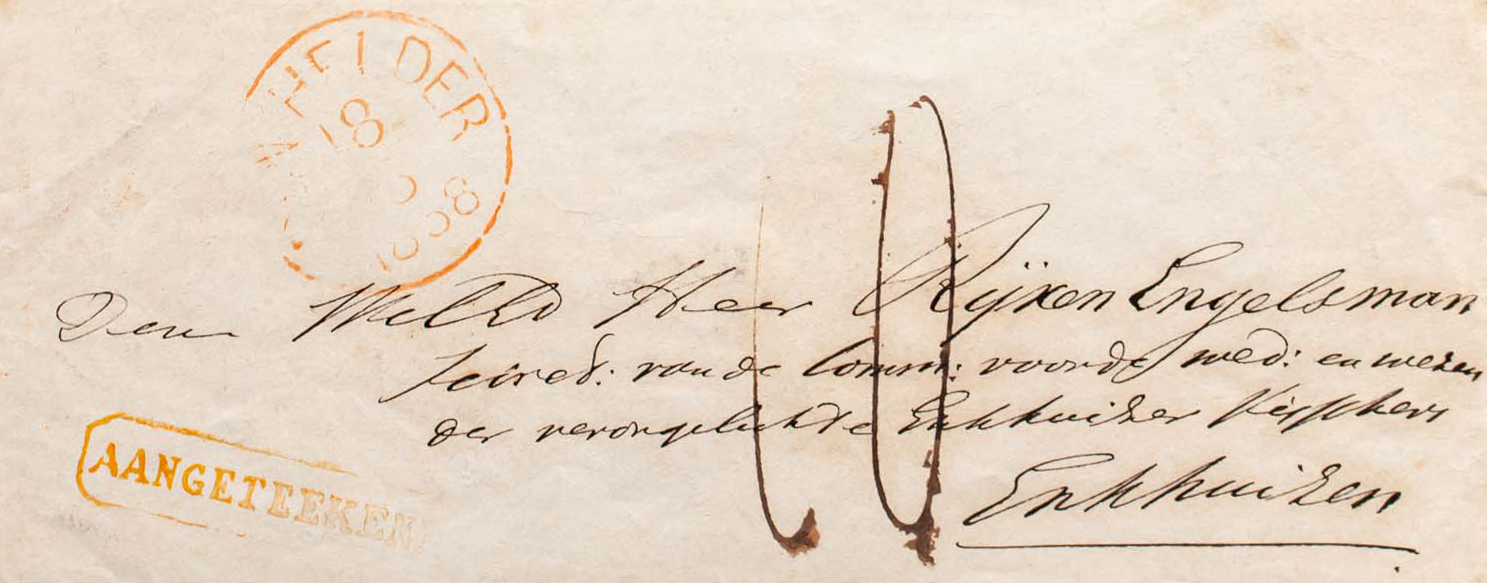 HELDER
18
1858
Den WelEd Heer Rijxen Engelsman
secret: van de Comm: voor de wed: en wezen
der verongelukte Enkhuizer Visschers
Enkhuizen
AANGETEEKEN